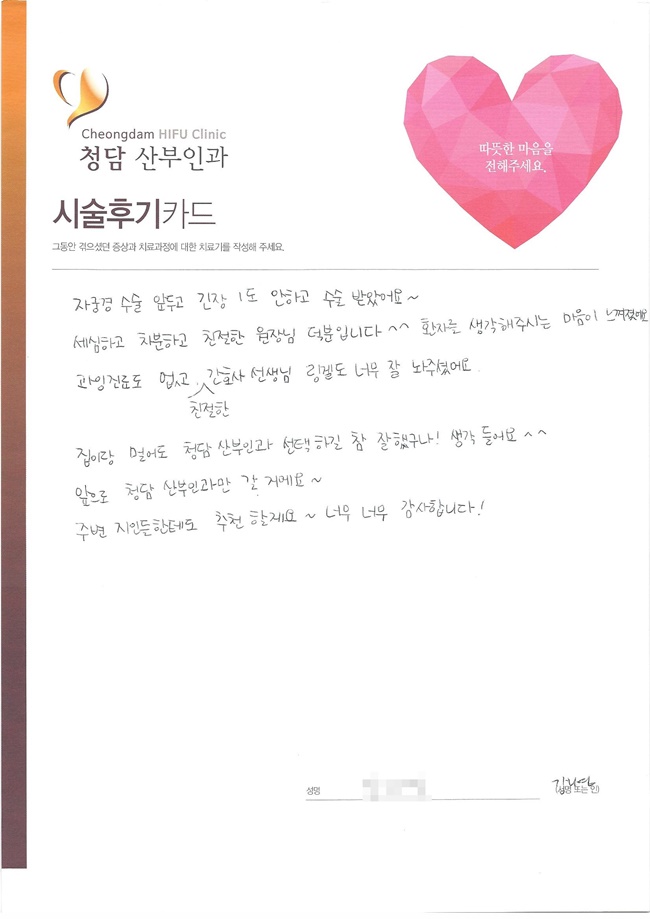 Cheongdam HIFU Clinic
청담 산부인과
따뜻한 마음을
전해주세요.
시술후기카드
그동안 겪으셨던 증상과 치료과정에 대한 치료기를 작성해 주세요.
자궁경 수술 앞두고 긴장 1도 안하고 수술 받았어요~
세심하고 차분하고 친절한 원장님 덕분입니다^^ 환자를 생각해주시는 마음이 느껴졌어요
과잉진료도 없고, 간호사 선생님 링겔도 너무 잘 놔주셨어요.
친절한
집이랑 멀어도 청담 산부인과 선택하길 참 잘했구나! 생각 들어요^^
앞으로 청담 산부인과만 갈 거에요~
주변 지인들한테도 추천 할게요~ 너무 너무 감사합니다!
성명
(서명 또는 인)